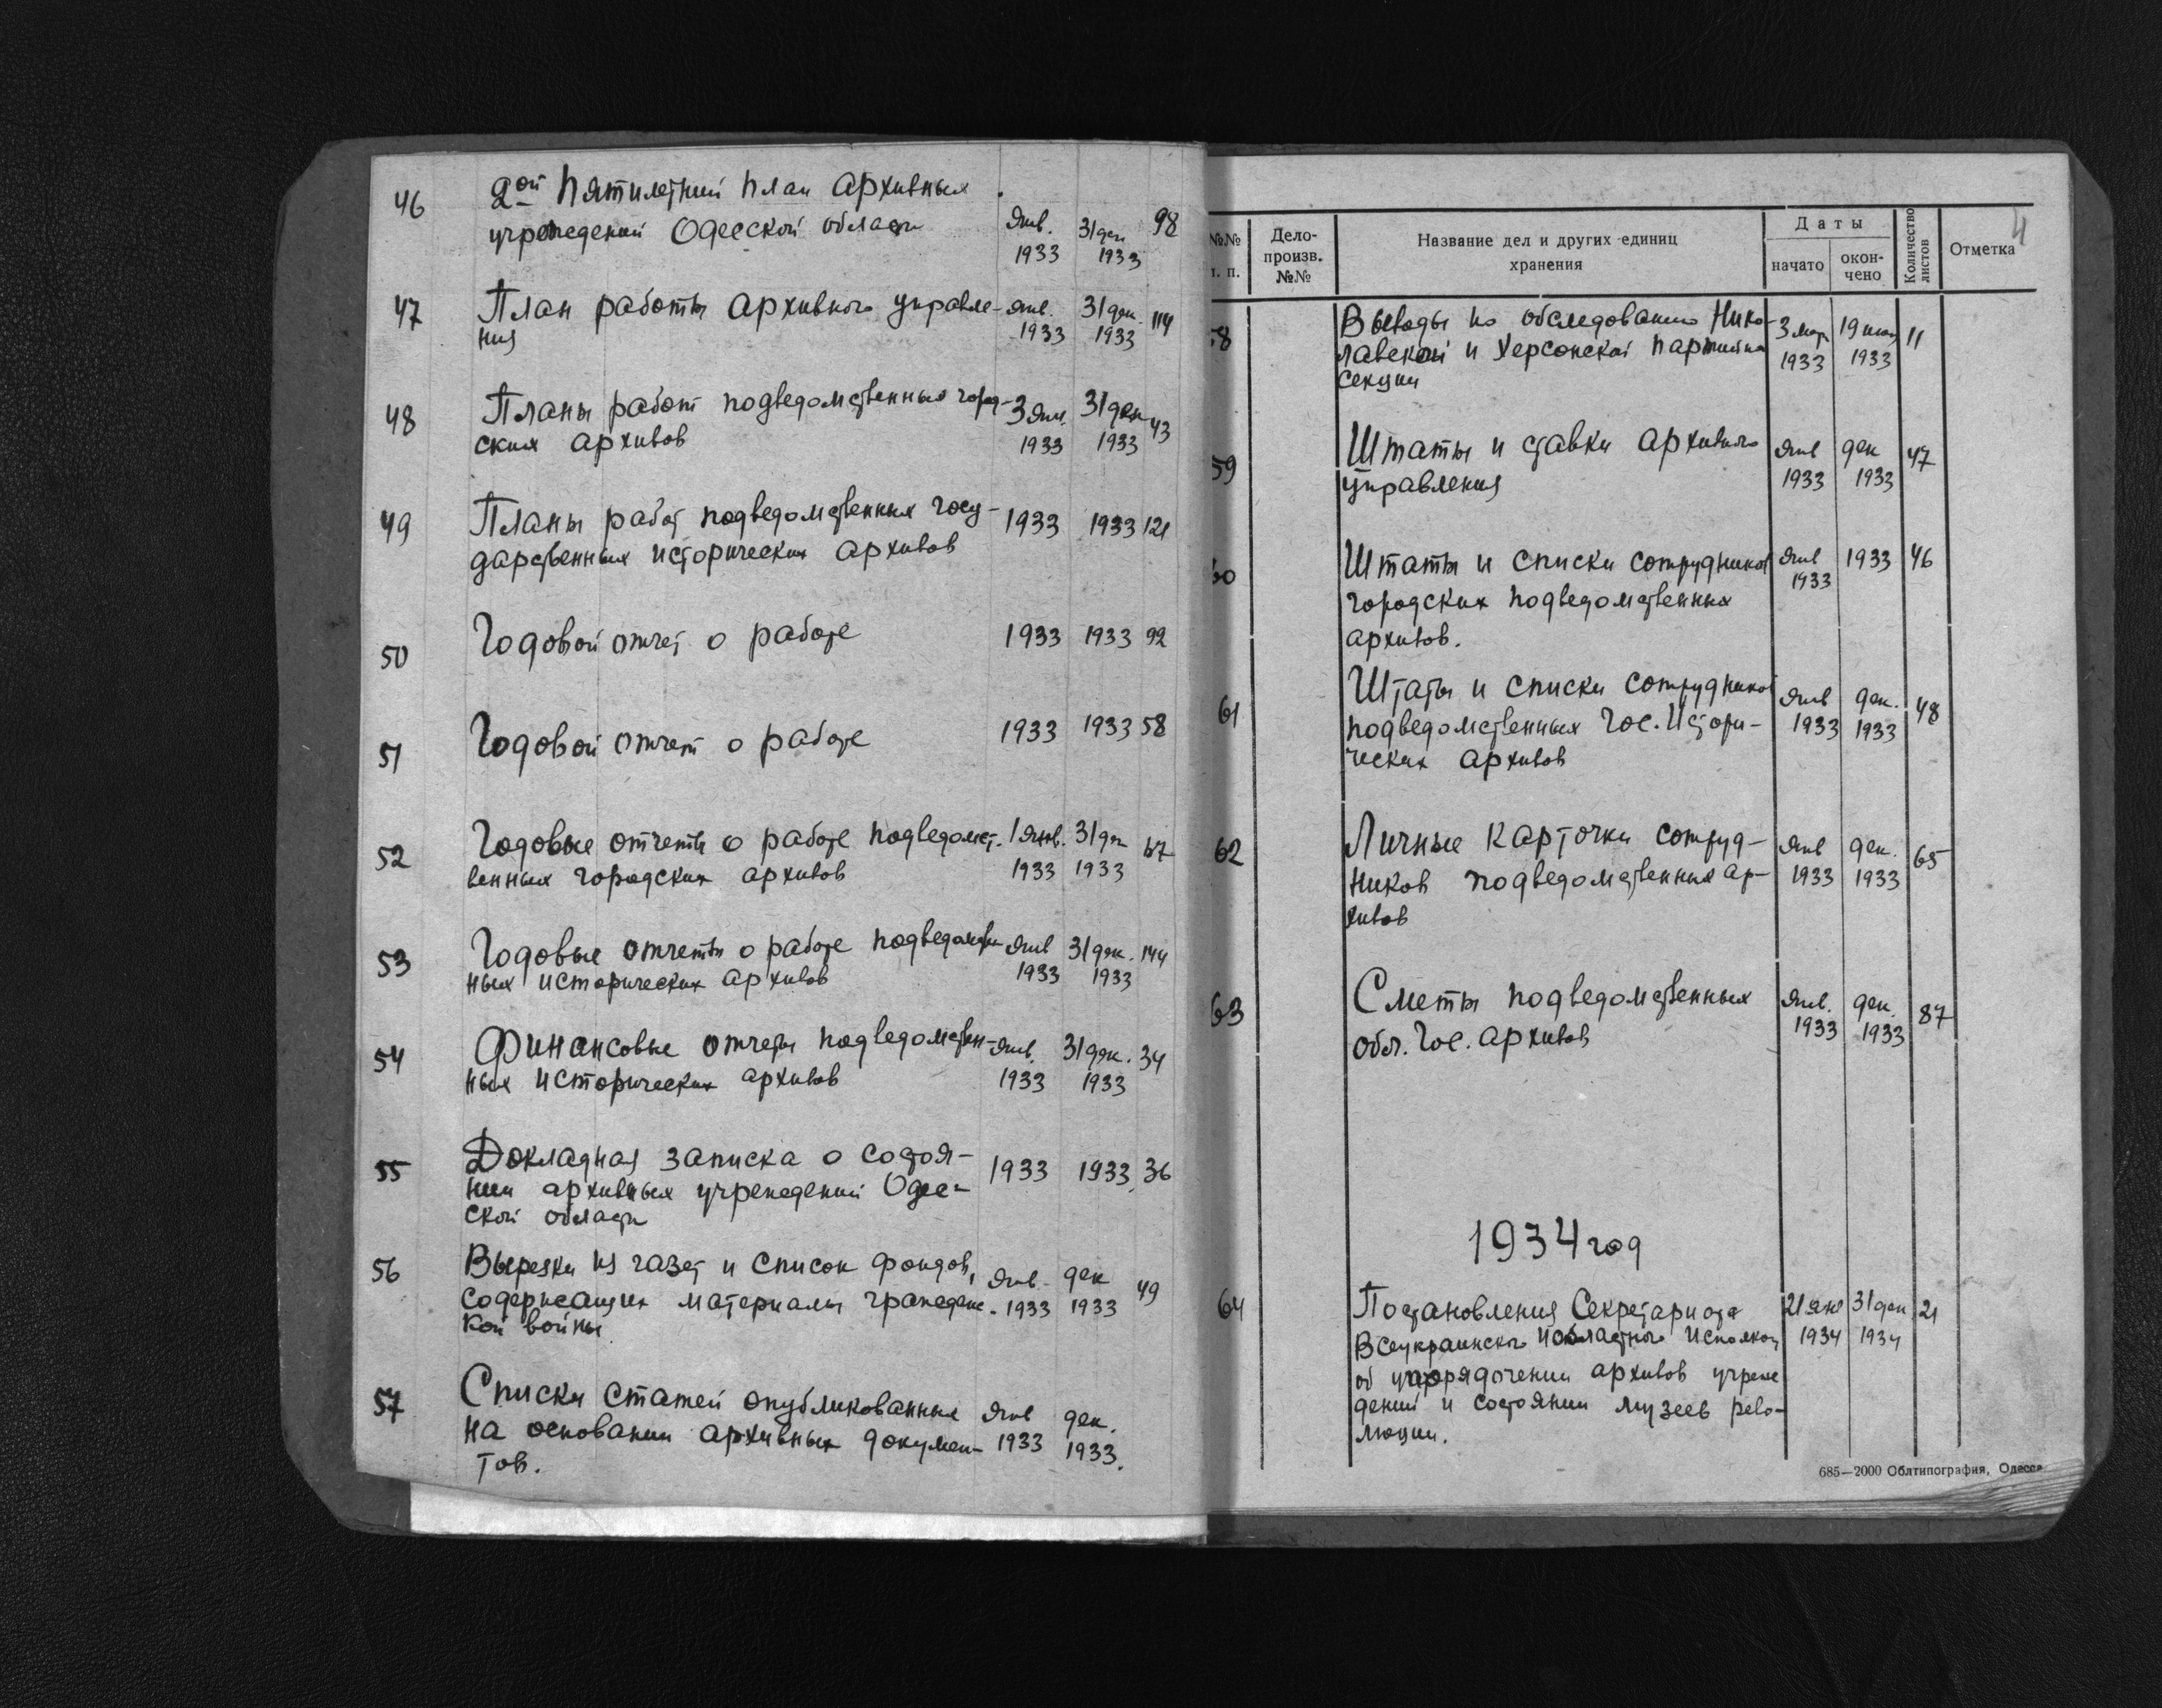 46 2ой Пятилетний план архивных
учреждений Одесской области Янв. 1933 31 дек 1933 98
47 План работы архивного управле- янв. 1933 31 дек. 1933 114
ния
48 Планы работ подведомственных город- 3 янв. 1933 31 дек 1933 43
ских архивов
49 Планы работ подведомственных госу- 1933 1933 121
дарственных исторических архивов
50 Годовой отчет о работе 1933 1933 92
51 Годовой отчет о работе 1933 1933 58
52 Годовые отчеты о работе подведомст. 1 янв. 1933 31 дек 1933
венных городских архивов
53 Годовые отчеты о работе подведомствен янв 1933 31 дек. 1933 144
ных исторических архивов
54 Финансовые отчеты подведомствен- янв. 1933 31 дек. 1933 34
ных исторических архивов
55 Докладная записка о состоя- 1933 1933 36
нии архивных учреждений Одес-
ской области
56 Вырезки из газет и список фондов, янв. 1933 дек 1933 49
содержащих материалы гражданс-
кой войны.
57 Списки статей опубликованных янв 1933 дек. 1933.
на основании архивных докумен-
тов.
4
№№ п. п. Дело-произв. №№ Название дел и других единиц хранения Даты начато окон-чено Количество листов Отметка
58 Выводы по обследованию Нико- 3 мар 1933 19 1933 11
лавской и Херсонской
секции
59 Штаты и ставки архивного янв 1933 дек 1933 47
управления
60 Штаты и списки сотрудников янв 1933 1933 46
городских подведомственных
архивов.
61 Штаты и списки сотрудников янв 1933 дек. 1933 48
подведомственных Гос. Истори-
ческих архивов
62 Личные карточки сотруд- янв 1933 дек. 1933 65
ников подведомственных ар-
хивов
63 Сметы подведомственных янв. 1933 дек. 1933 87
обл. Гос. архивов
1934 год
64 Постановления Секретариата 21 янв 1934 31 дек 1934 21
Всеукраинского и областного исполком
об упорядочении архивов учреж
дений и состоянии музеев рево-
люции.
685—2000 Облтипография, Одесса